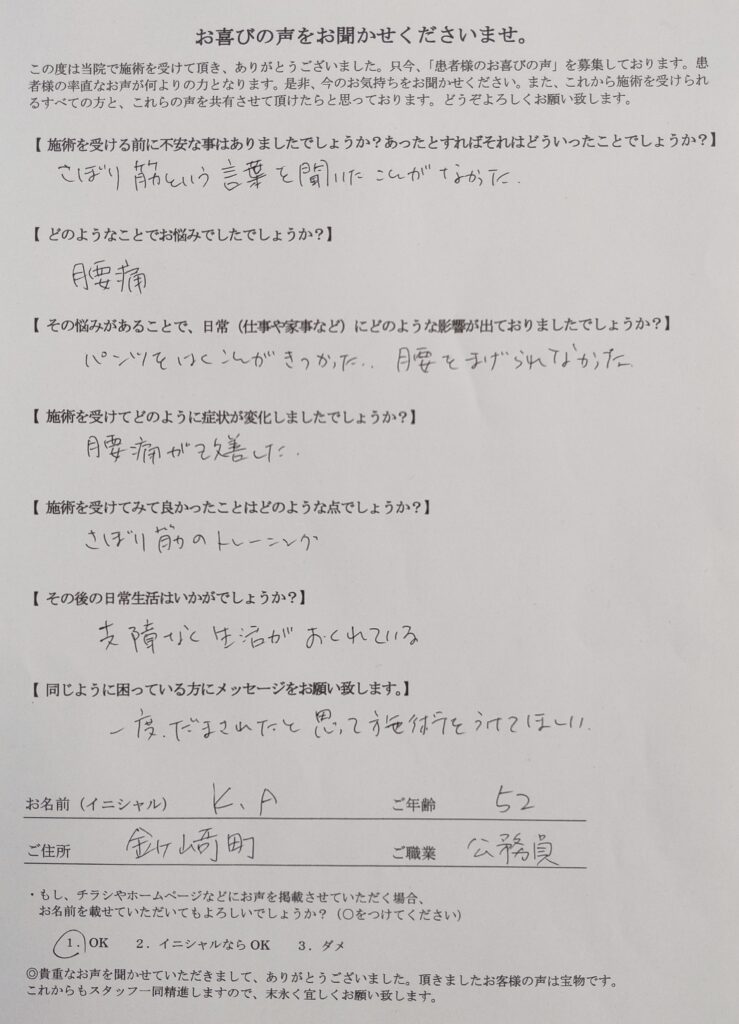 お喜びの声をお聞かせくださいませ。
この度は当院で施術を受けて頂き、ありがとうございました。只今、「患者様のお喜びの声」を募集しております。患
者様の率直なお声が何よりの力となります。是非、今のお気持ちをお聞かせください。また、これから施術を受けられ
るすべての方と、これらの声を共有させて頂けたらと思っております。どうぞよろしくお願い致します。
【 施術を受ける前に不安な事はありましたでしょうか？あったとすればそれはどういったことでしょうか？】
さぼり筋という言葉を聞いたことがなかった.
【 どのようなことでお悩みでしたでしょうか？】
腰痛
【 その悩みがあることで、日常（仕事や家事など）にどのような影響が出ておりましたでしょうか？】
パンツをはくことがきつかった.. 腰をまげられなかった
【 施術を受けてどのように症状が変化しましたでしょうか？】
腰痛が改善した.
【 施術を受けてみて良かったことはどのような点でしょうか？】
さぼり筋のトレーニング
【 その後の日常生活はいかがでしょうか？】
支障なく生活がおくれている
【 同じように困っている方にメッセージをお願い致します。】
一度、だまされたと思って施術をうけてほしい.
お名前（イニシャル） K、A ご年齢 52
ご住所 金ヶ崎町 ご職業 公務員
・もし、チラシやホームページなどにお声を掲載させていただく場合、
お名前を載せていただいてもよろしいでしょうか？（○をつけてください）
1．OK 2．イニシャルなら OK 3．ダメ
◎貴重なお声を聞かせていただきまして、ありがとうございました。頂きましたお客様の声は宝物です。
これからもスタッフ一同精進しますので、末永く宜しくお願い致します。